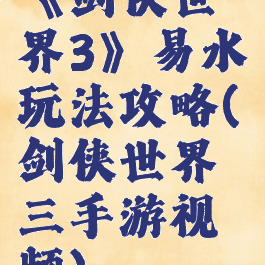 《剑侠世
界3》易水
玩法攻略(
剑侠世界
三手游视
频)